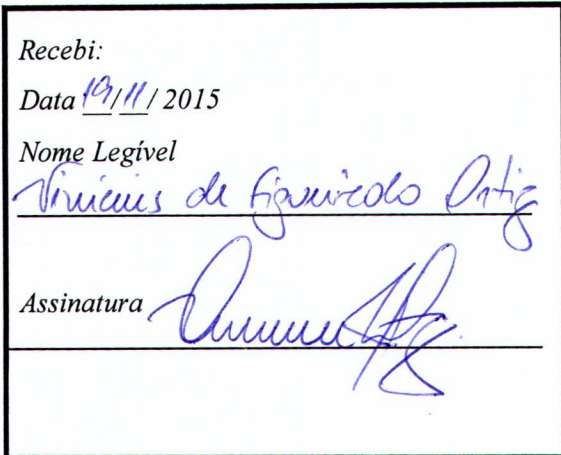 Recebi:
Data 19/11/ 2015
Nome Legível
Vinicius de Figueiredo Ortiz
Assinatura